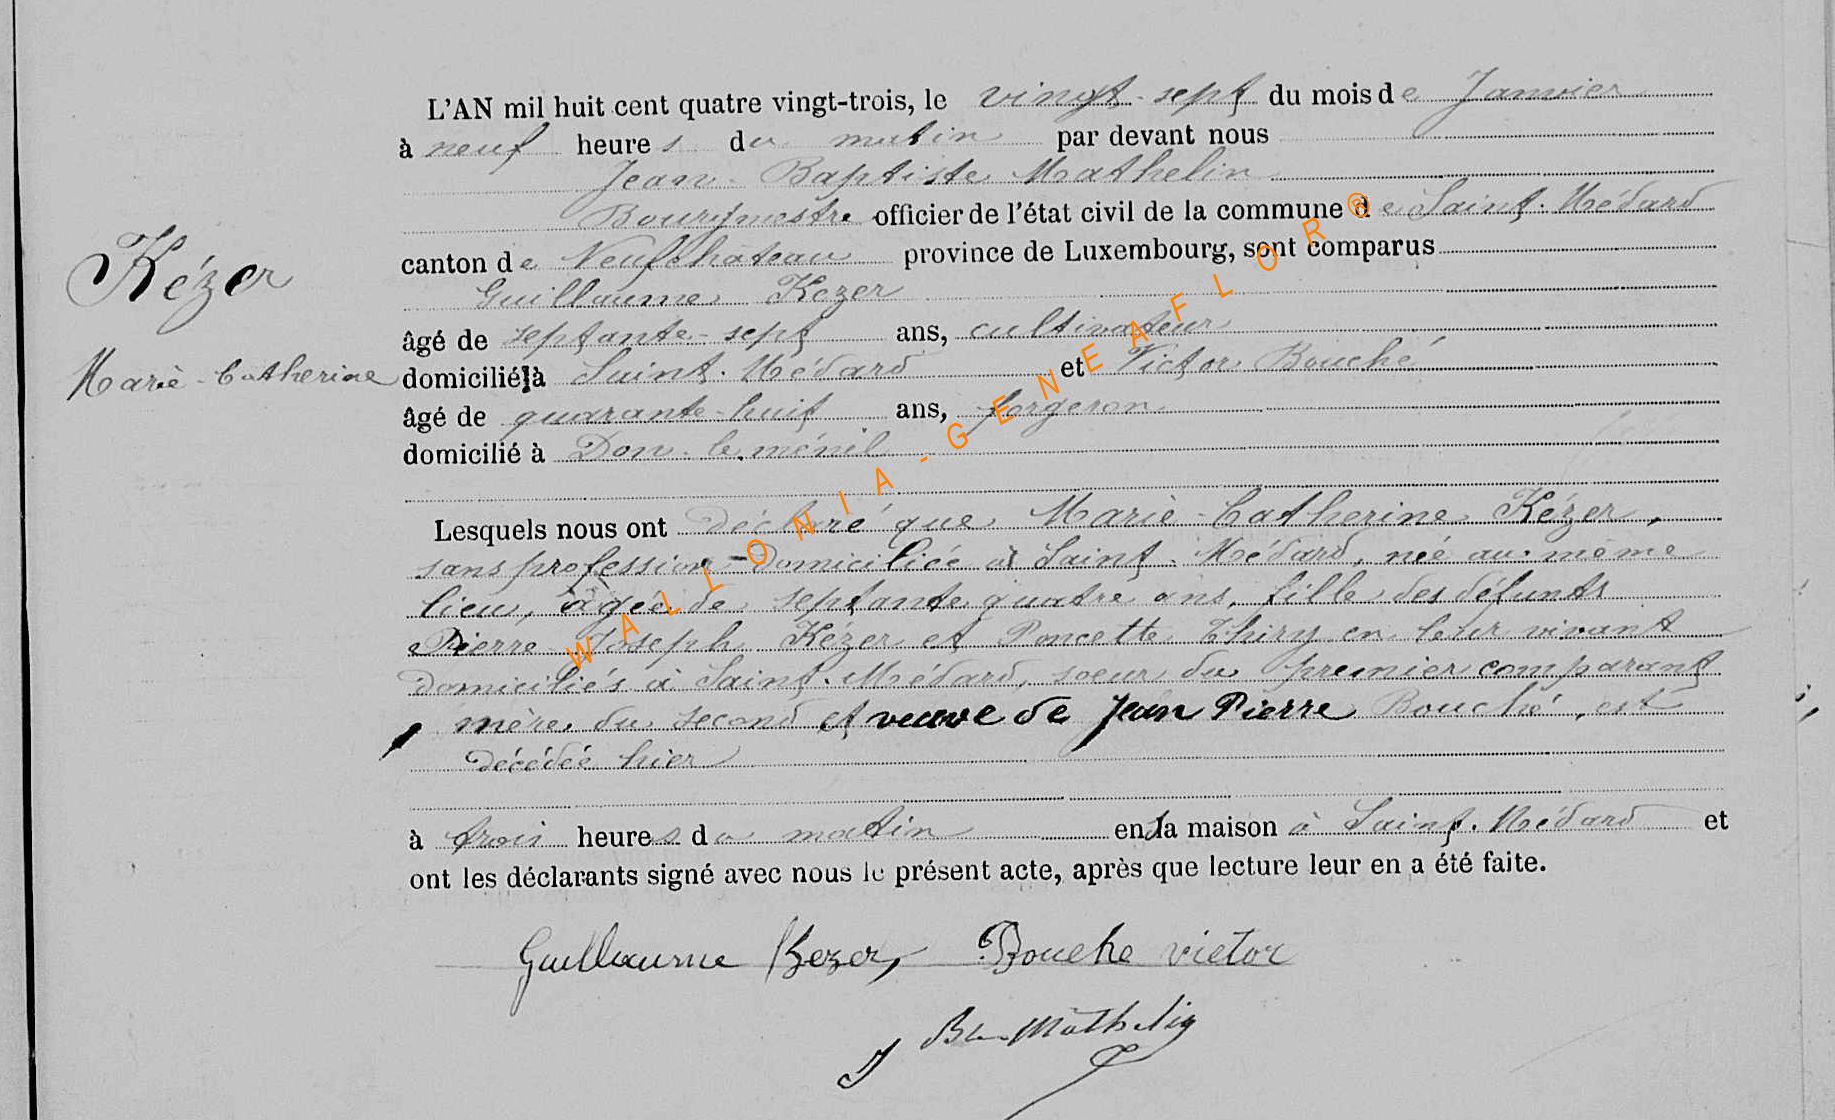 L'AN mil huit cent quatre vingt-trois, le vingt-sept du mois de Janvier
à neuf heures du matin par devant nous
Jean-Baptiste Mathelin
Bourgmestre officier de l'état civil de la commune de Saint-Médard
canton de Neufchâteau province de Luxembourg, sont comparus
Guillaume Kezer
âgé de septante-sept ans, cultivateur
domicilié à Saint-Médard et Victor Bouché
âgé de quarante-huit ans, forgeron
domicilié à Don-le-ménil
Kézer
Marie-Catherine
Lesquels nous ont déclaré que Marie-Catherine Kézer,
sans profession domiciliée à Saint-Médard, née au même
lieu, âgée de septante quatre ans, fille des défunts
Pierre Joseph Kézer et Poncette Thiry en leur vivant
domiciliés à Saint-Médard, soeur du premier comparant
, mère du second et veuve de Jean Pierre Bouché, est
décédée hier
à trois heures du matin en la maison à Saint-Médard et
ont les déclarants signé avec nous le présent acte, après que lecture leur en a été faite.
Guillaume Kezer, Bouche victor
J Bte Mathelin
WALLONIA-GENEAFLOR®